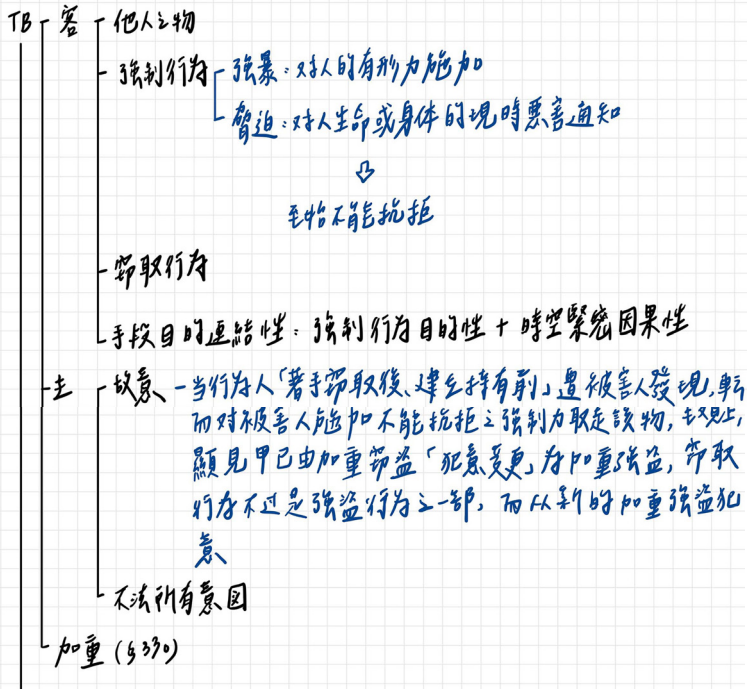 TB 客 他人之物
強制行為 強暴:对人的有形力施加
脅迫:対人生命或身体的現時惡害通知
至始不能抗拒
竊取行為
手段目的連結性:強制行為目的性+時空緊密因果性
主 故意 当行為人「著手竊取後、建立持有前」遭被害人發現,転
而対被害人施加不能抗拒之強制力取走該物,主觀上,
顯見甲已由加重竊盜「犯意変更」為加重強盜,竊取
行為不过是強盜行為之一部,而从新的加重強盜犯
意
不法所有意図
加重(§330)